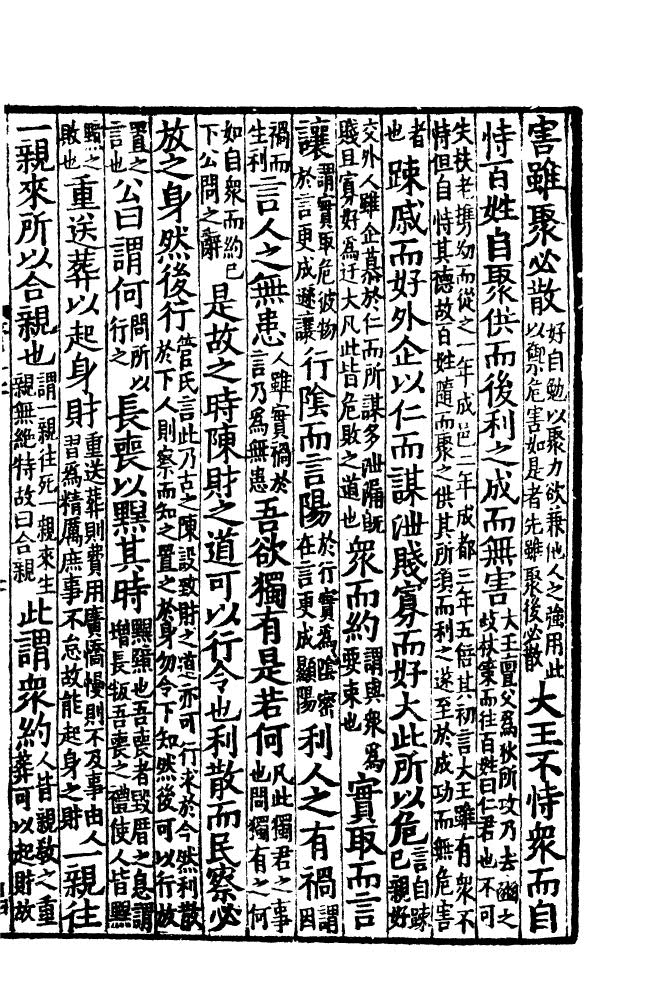 害雖聚必散好自勉以聚力欲兼他人之強用此以禦危害如是者先雖聚後必散大王不恃衆而自
恃百姓自聚供而後利之成而無害大王亶父為狄所攻乃去豳之歧杖策而往百姓曰仁君也不可
失扶老攜幼而從之一年成邑二年成都三年五倍其初言大王雖有衆不恃但自恃其德故百姓隨而聚之供其所須而利之遂至於成功而無危害
者也踈戚而好外企以仁而謀泄賤寡而好大此所以危言自踈已親好
交外人雖企慕於仁而所謀多泄漏旣賤且寡好為迂大凡此皆危敗之道也衆而約謂與衆為要束也實取而言
讓謂實取危彼物於言更成遜讓行陰而言陽於行實為陰密在言更成顯陽利人之有禍謂因
禍而生利言人之無患人雖實禍於言乃為無患吾欲獨有是若何凡此獨君之事也問獨有之何
如自衆而約已下公問之辭是故之時陳財之道可以行令也利散而民察必
放之身然後行管氏言此乃古之陳設致財之道亦可行来於今然利散於下人則察而知之置之於身勿令下知然後可以行故
置之言也公曰謂何問所以行之長喪以䵝其時䵝顯也吾喪者毀厝之息謂增長喪之禮使人皆䵝
䵝之敗也重送葬以起身財重送葬則費用廣憍慢則不及事由人習為精厲庶事不怠故能起身之財一親往
一親來所以合親也謂一親往死一親來生親無絕特故曰合親此謂衆約人皆親敎之重葬可以起財故